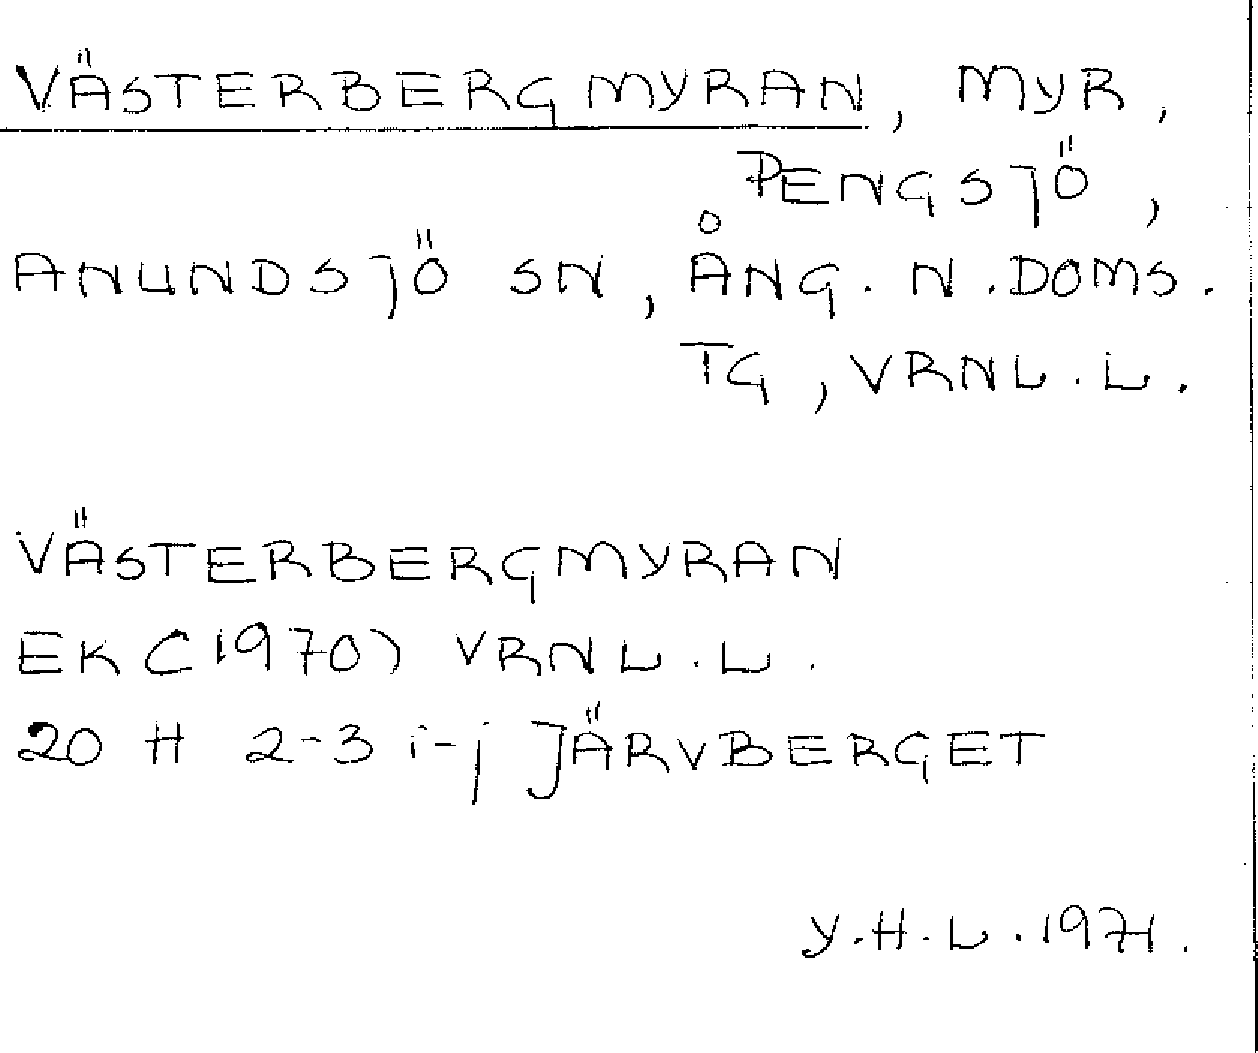 VÄSTERBERGMYRAN, MYR,
PENGSJÖ,
ANUNDSJÖ SN, ÅNG. N. DOMS.
TG, VRNL. L.
VÄSTERBERGMYRAN
EK (1970) VRNL. L.
20 H 2-3 i-j JÄRVBERGET
Y.H.L. 1971.